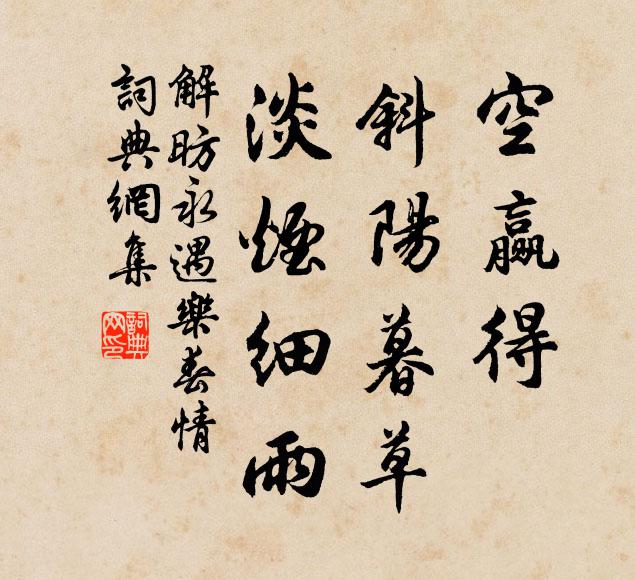 空贏得
斜陽暮草
淡煙細雨
解昉永遇樂春情
詞典網集
詞典
网印